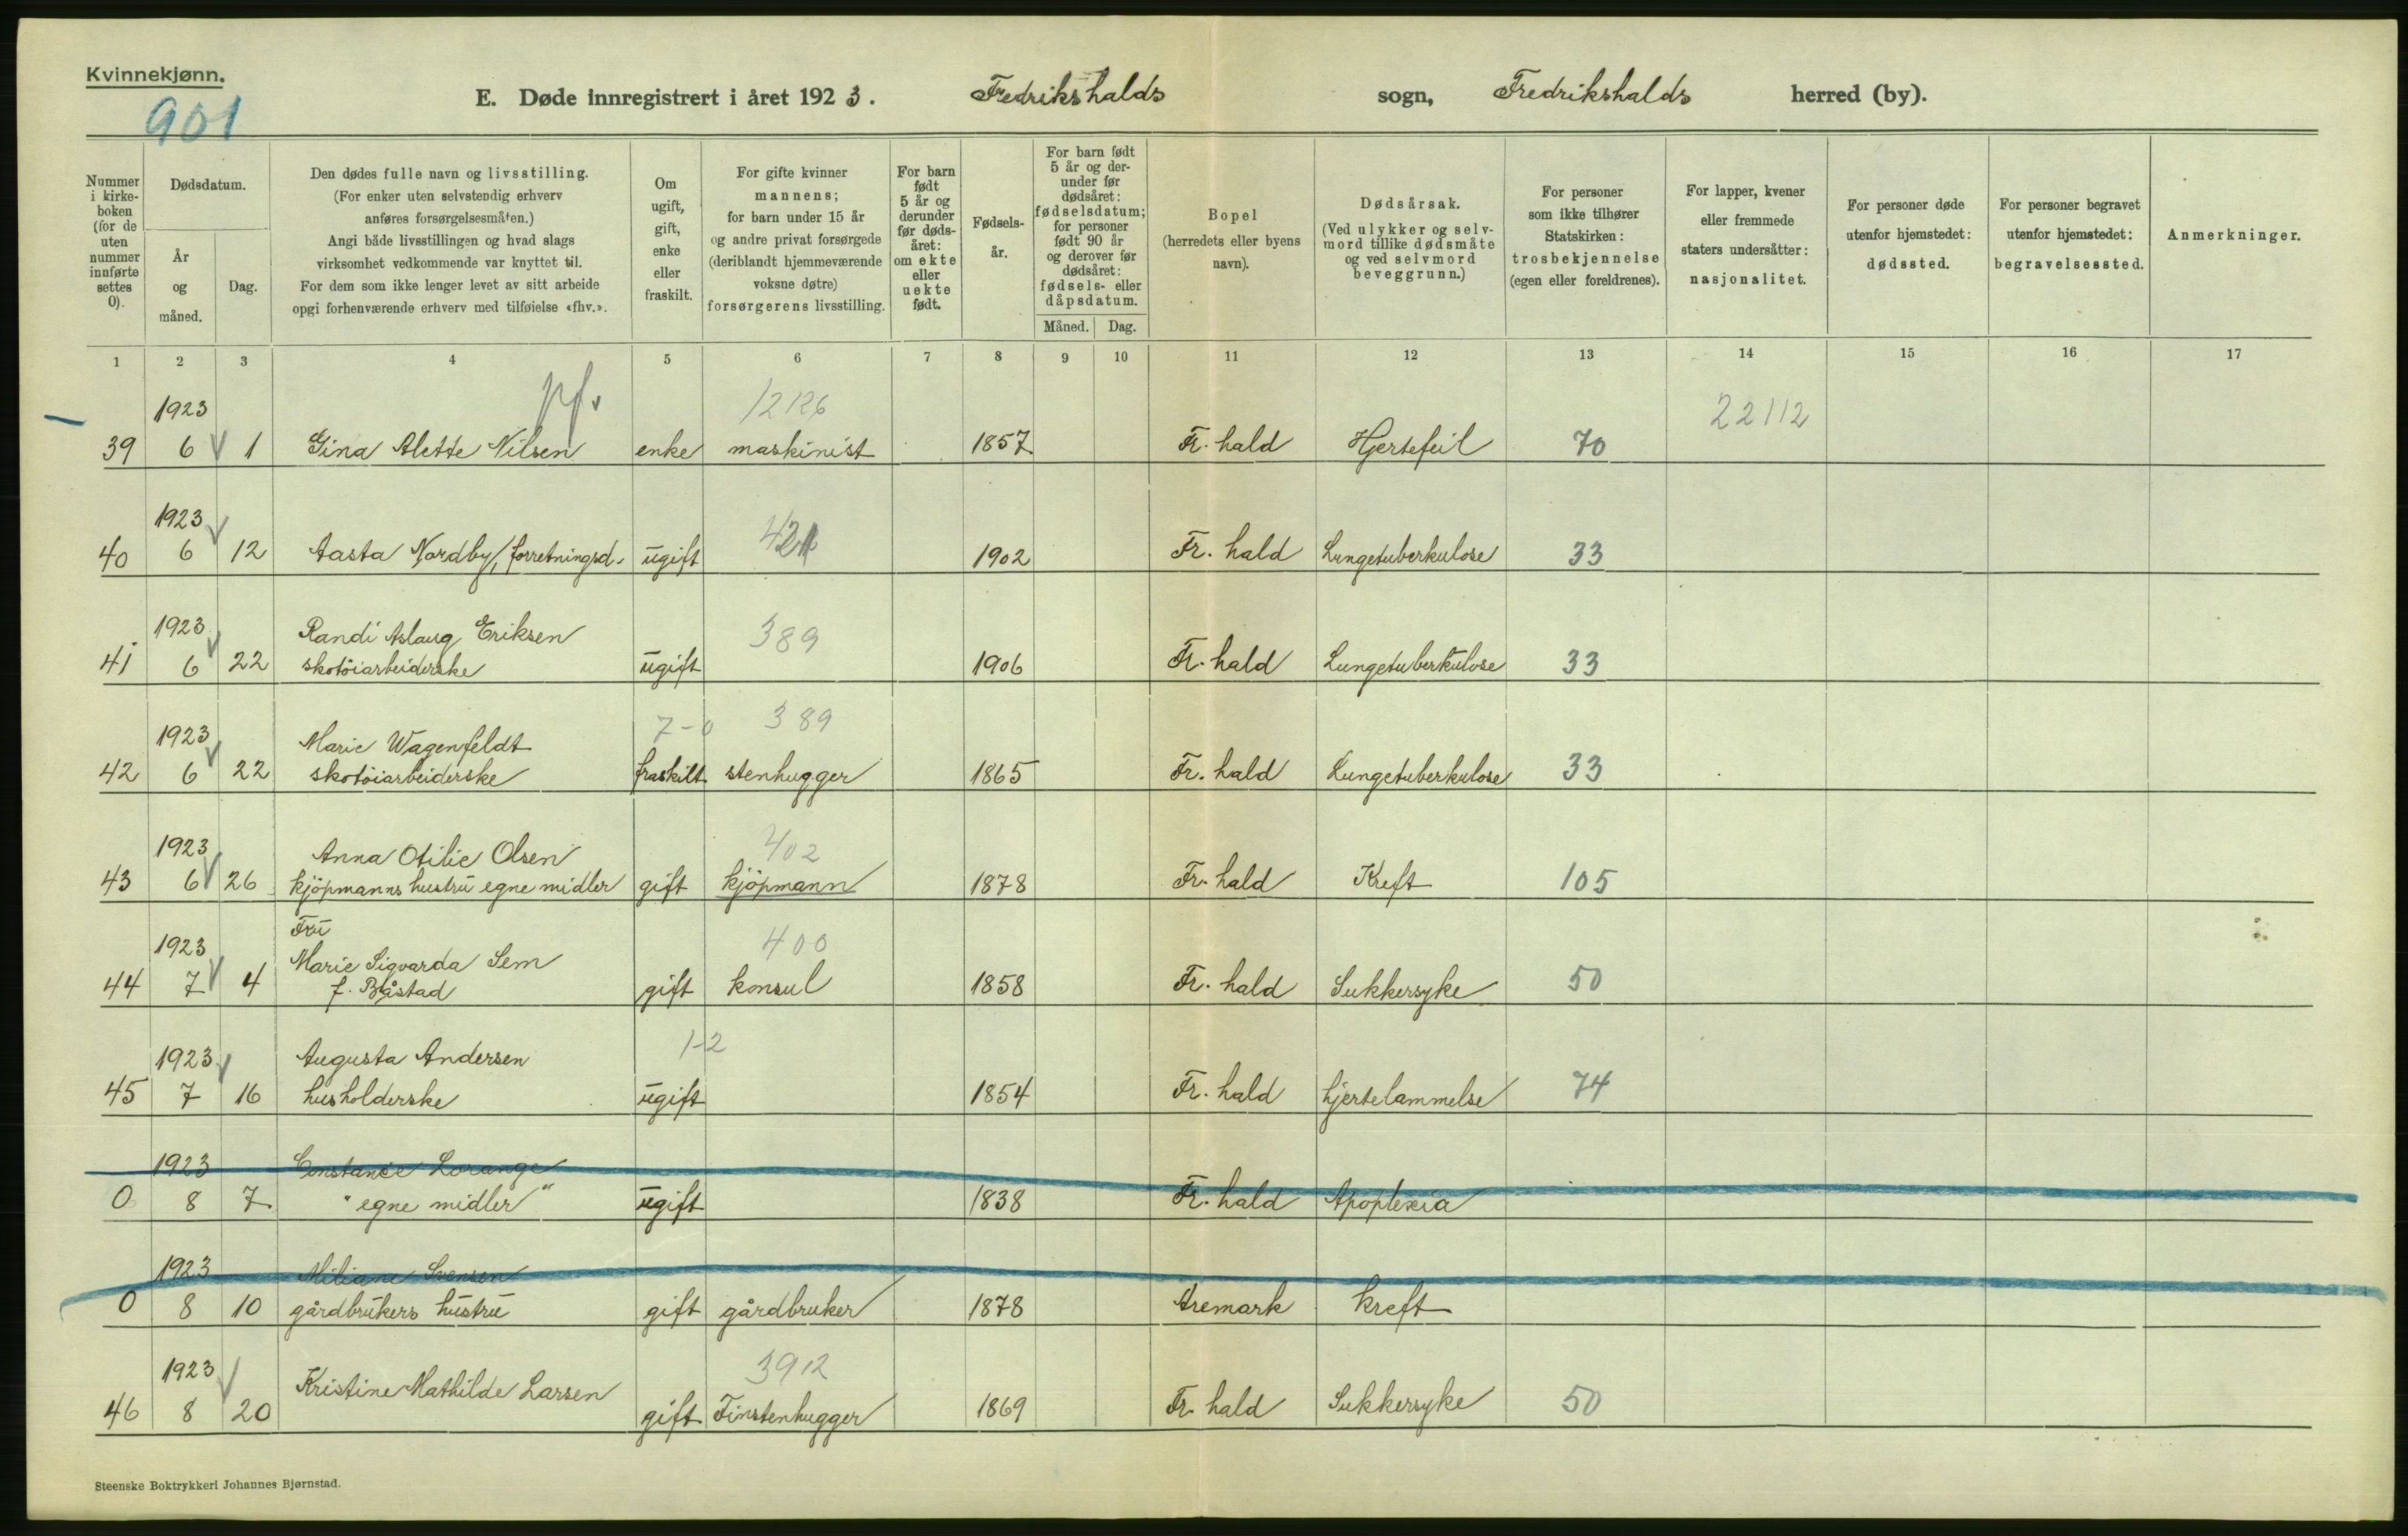 Kvinnekjønn.
901
E. Døde innregistrert i året 1923. Fredrikshalds sogn, Fredrikshalds herred (by).
Nummer i kirke-boken (for de uten nummer innførte settes 0).
Dødsdatum.
År og måned.
Dag.
Den dødes fulle navn og livsstilling.
(For enker uten selvstendig erhverv
anføres forsørgelsesmåten.)
Angi både livsstillingen og hvad slags
virksomhet vedkommende var knyttet til.
For dem som ikke lenger levet av sitt arbeide
opgi forhenværende erhverv med tilføielse «fhv.».
Om ugift, gift, enke eller fraskilt.
For gifte kvinner
mannens;
for barn under 15 år
og andre privat forsørgede
(deriblandt hjemmeværende
voksne døtre)
forsørgerens livsstilling.
For barn født 5 år og derunder før døds-året: om ekte eller uekte født.
Fødsels-år.
For barn født
5 år og der-
under før
dødsåret:
fødselsdatum;
for personer
født 90 år
og derover før
dødsåret:
fødsels- eller
dåpsdatum.
Måned. Dag.
Bopel
(herredets eller byens
navn).
Dødsårsak.
(Ved ulykker og selv-
mord tillike dødsmåte
og ved selvmord
beveggrunn.)
For personer
som ikke tilhører
Statskirken:
trosbekjennelse
(egen eller foreldrenes).
For lapper, kvener
eller fremmede
staters undersåtter:
nasjonalitet.
For personer døde
utenfor hjemstedet:
dødssted.
For personer begravet
utenfor hjemstedet:
begravelsessted.
Anmerkninger.
1 2 3 4 5 6 7 8 9 10 11 12 13 14 15 16 17
1923 pf. 12126 22112
39 6 1 Gina Alette Nilsen enke maskinist 1857 Fr. hald Hjertefeil 70
1923 421
40 6 12 Aasta Nordby, forretningsd. ugift 1902 Fr. hald Lungetuberkulose 33
1923 Randi Aslaug Eriksen 389
41 6 22 skotöiarbeiderske ugift 1906 Fr. hald Lungetuberkulose 33
1923 Marie Wagenfeldt 7-0 389
42 6 22 skotöiarbeiderske fraskilt stenhugger 1865 Fr. hald Lungetuberkulose 33
1923 Anna Otilie Olsen 402
43 6 26 kjöpmanns hustru egne midler gift kjöpmann 1878 Fr. hald Kreft 105
Fru
1923 Marie Sigvarda Sem 400
44 7 4 f. Båstad gift konsul 1858 Fr. hald Sukkersyke 50
1923 Augusta Andersen 1-2
45 7 16 husholderske ugift 1854 Fr. hald hjertelammelse 74
1923 Constance Lorange
0 8 7 "egne midler" ugift 1838 Fr. hald Apoplexia
1923 Miliane Svensen
0 8 10 gårdbrukers hustru gift gårdbruker 1878 Aremark kreft
1923 Kristine Mathilde Larsen 3912
46 8 20 gift Finstenhugger 1869 Fr. hald Sukkersyke 50
Steenske Boktrykkeri Johannes Bjørnstad.